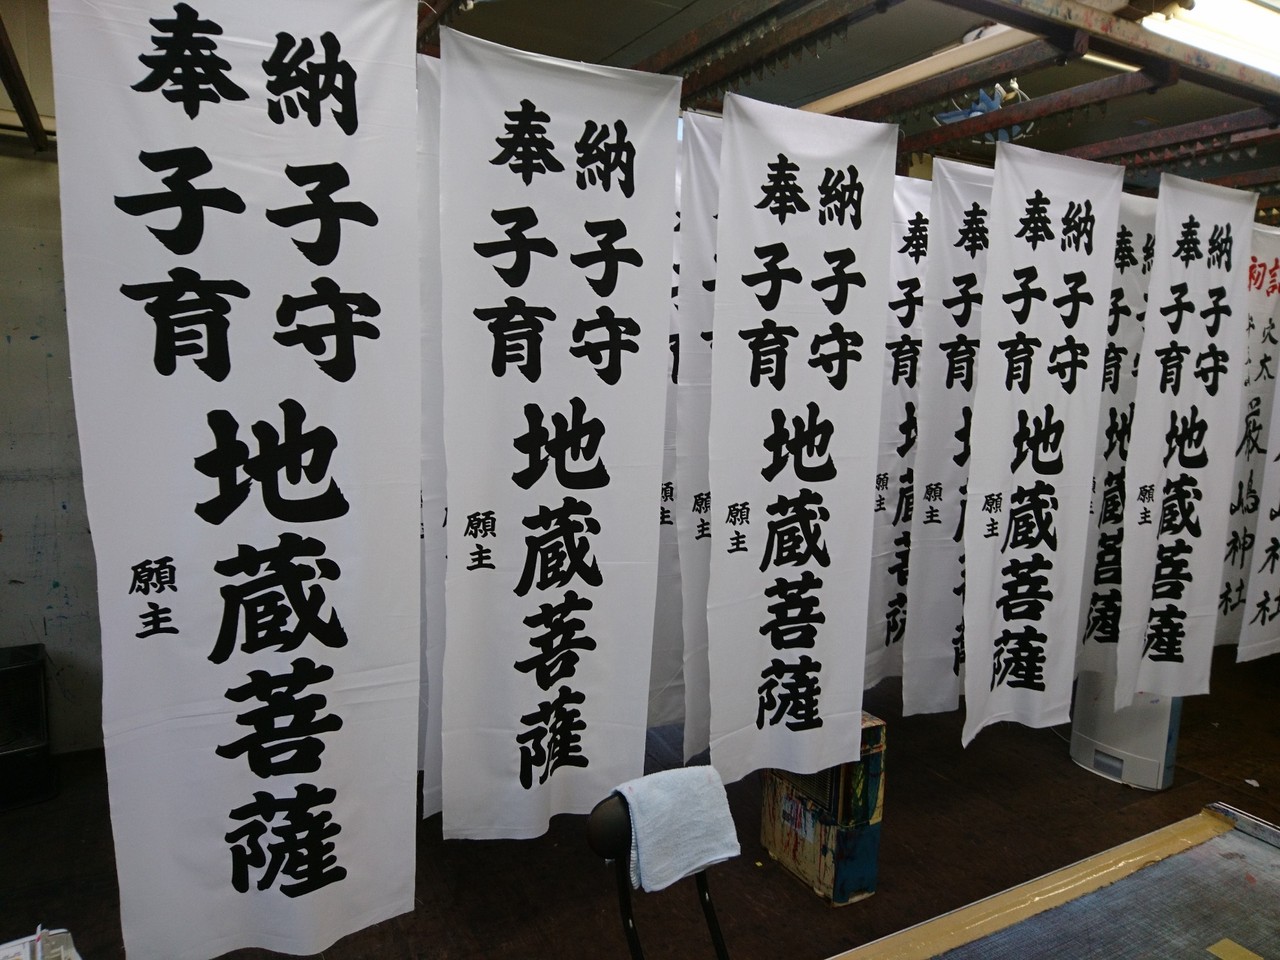 奉納
子守
子育
地蔵菩薩
願主
奉納
子守
子育
地蔵菩薩
願主
奉納
子守
子育
地蔵菩薩
願主
奉
子育
地蔵菩薩
願主
奉
子育
願主
奉納
子守
子育
地蔵菩薩
願主
奉
子育
地蔵菩薩
奉納
子守
子育
地蔵菩薩
願主
初詣
穴太
厳嶋神社